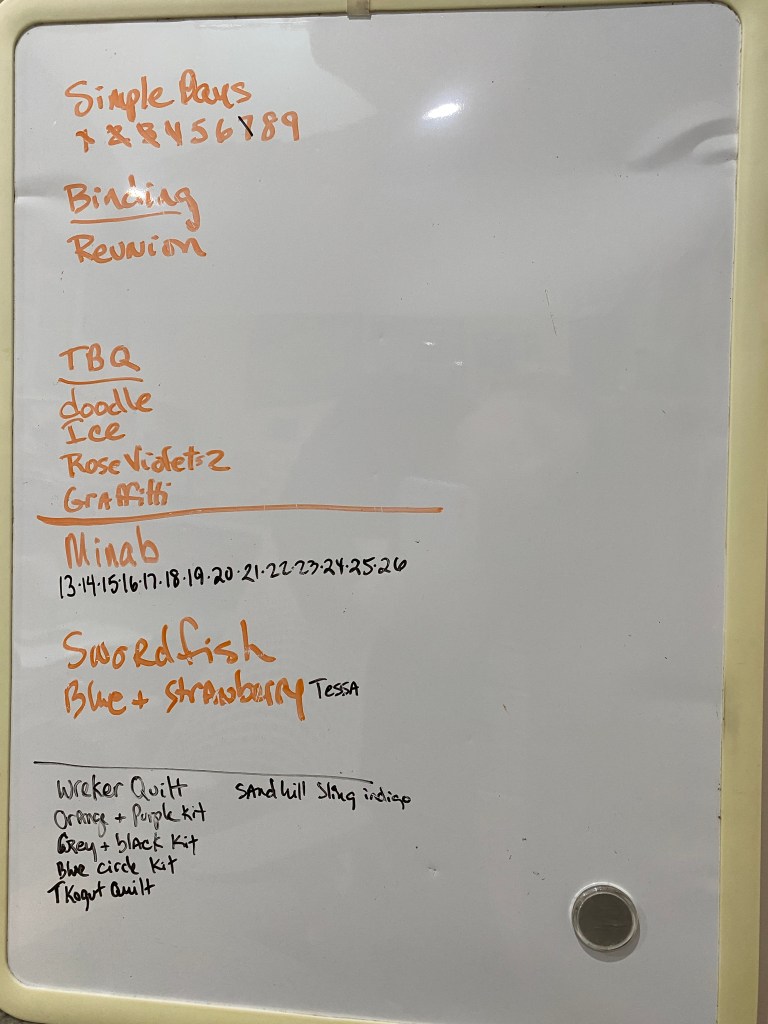 Simple Days
1 2 3 4 5 6 7 8 9
Binding
Reunion
TBQ
doodle
Ice
Rose Violet=2
Graffitti
Minab
13·14·15·16·17·18·19·20·21·22·23·24·25·26
Swordfish
Blue + strawberry Tessa
Wreker Quilt Sandhill Sling indigo
Orange + Purple Kit
Grey + black Kit
Blue circle Kit
TKogut Quilt